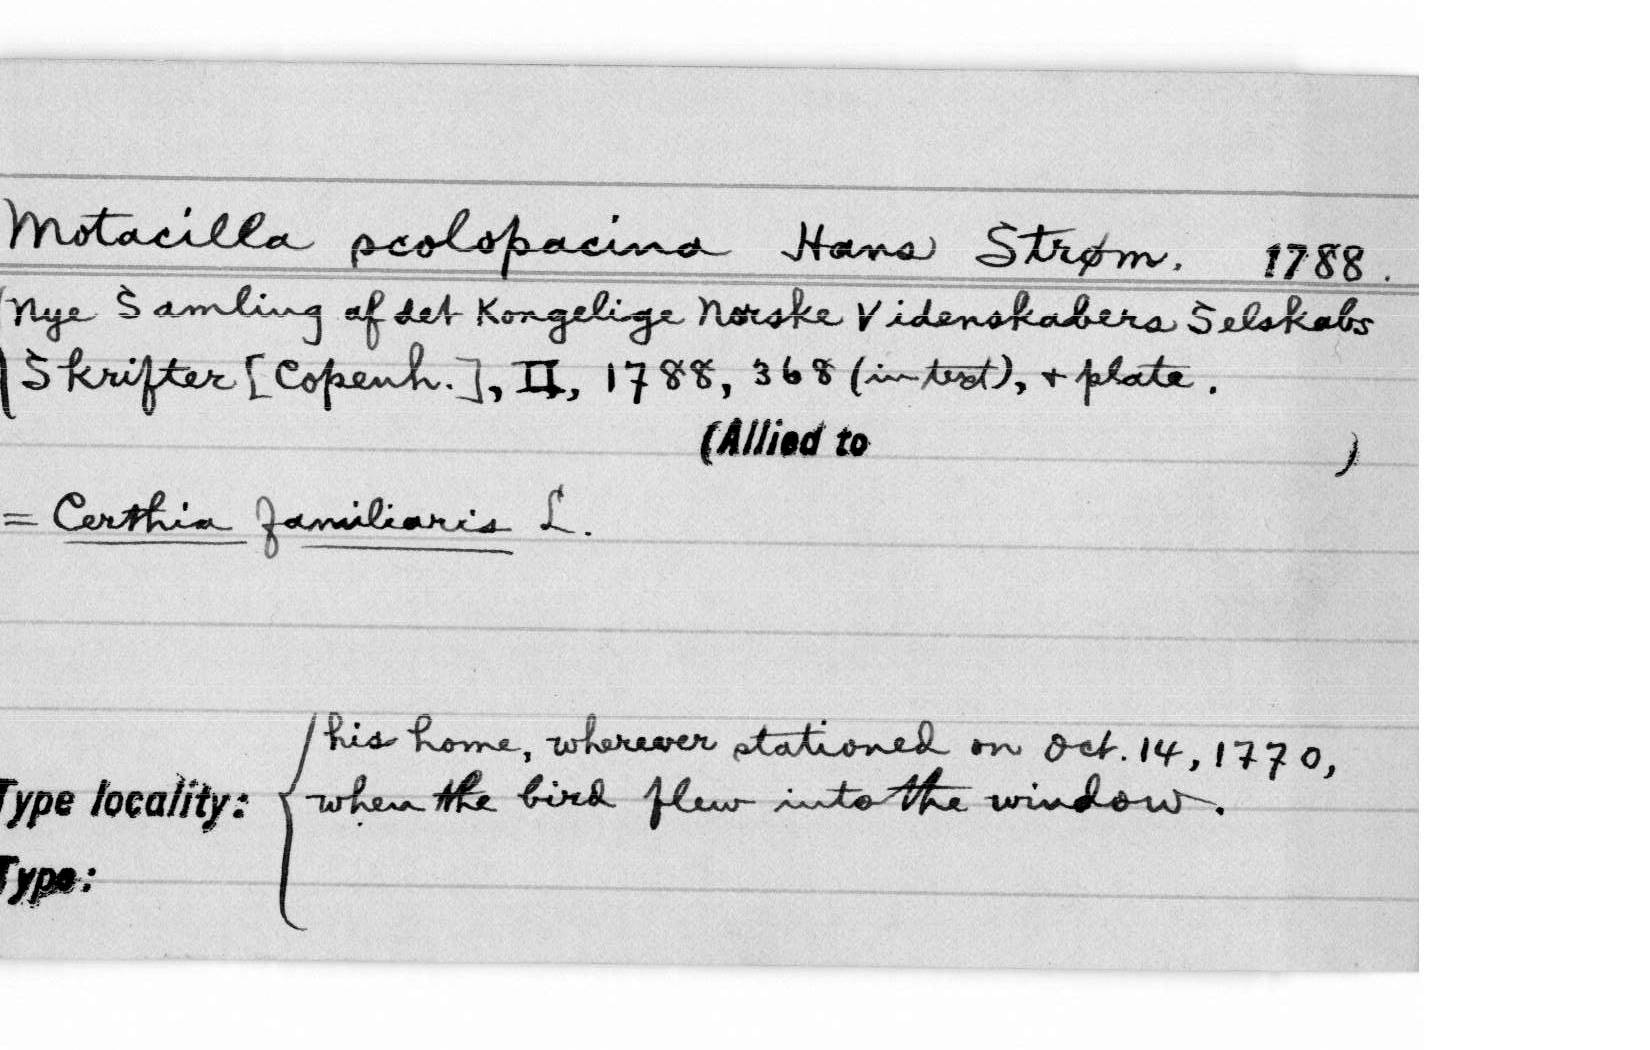 Motacilla scolopacina Hans Strøm. 1788.
Nye Samling af det Kongelige Norske Videnskabers Selskabs
Skrifter [Copenh.], II, 1788, 368 (in text), + plate.
(Allied to )
= Certhia familiaris L.
his home, wherever stationed on Oct. 14, 1770,
Type locality: when the bird flew into the window.
Type: